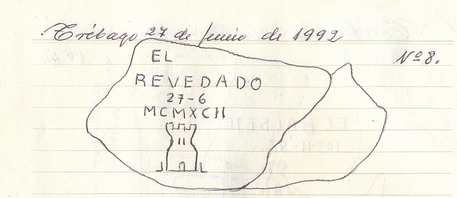 Trébago 27 de Junio de 1992
Nº 8.
EL
REVEDADO
27-6
MCMXCII